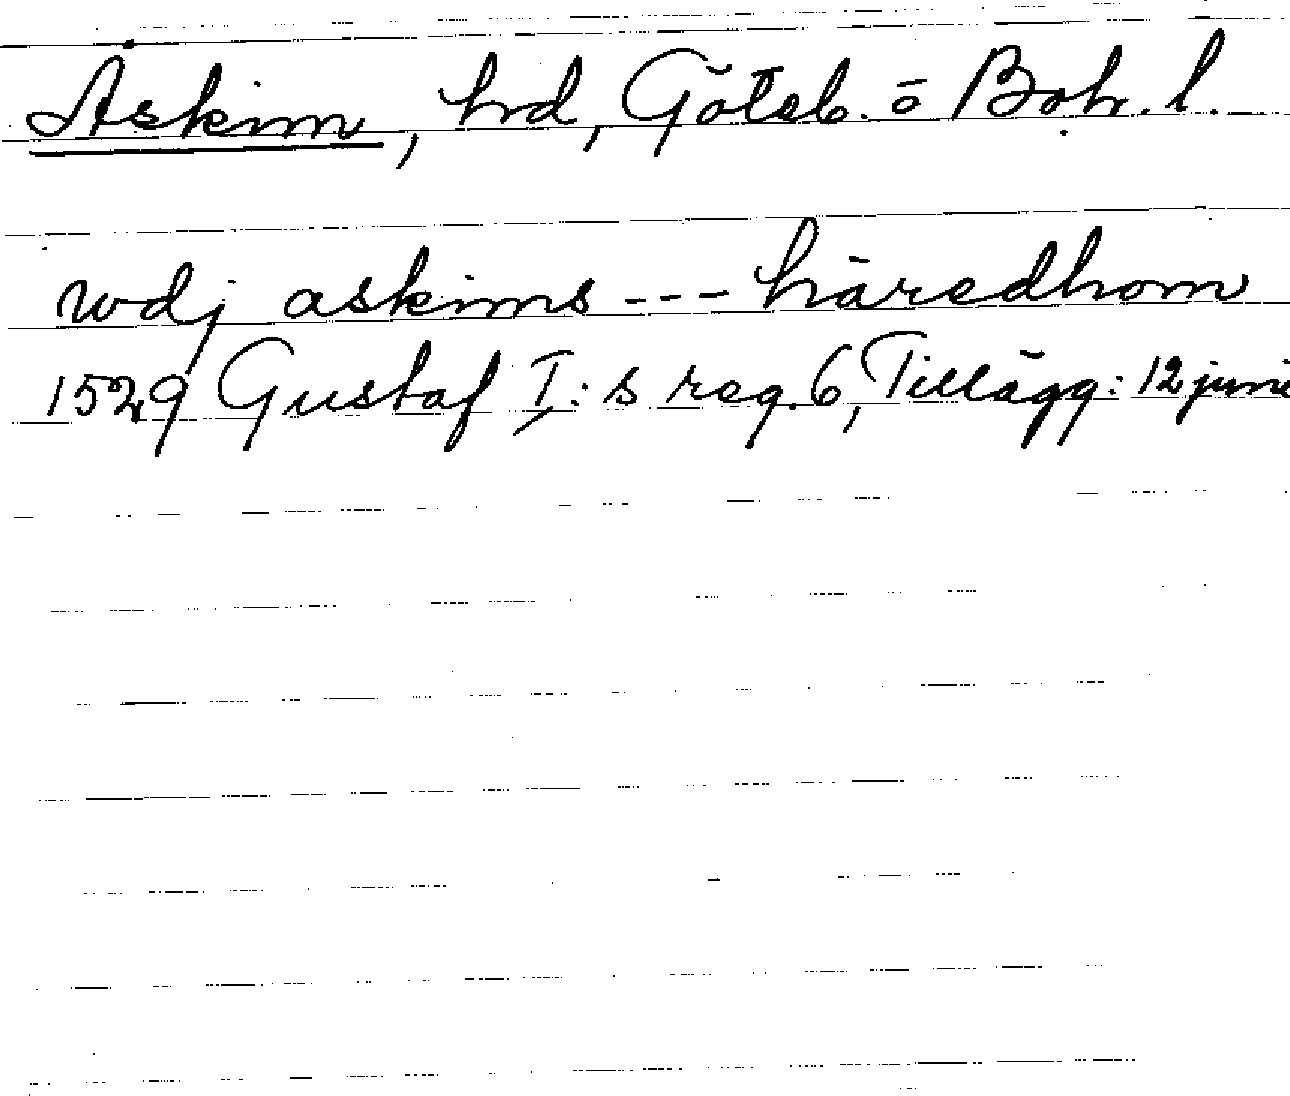 Askim, hrd, Götsb. o Boh. l.
wdj askims --- häredhom
1529 Gustaf I:s reg. 6, Tillägg: 12 juni